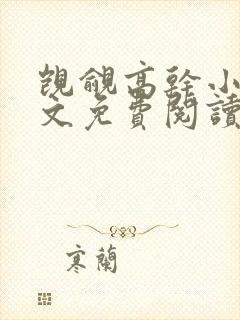 覬覦高幹小
文免費閱讀
寒蘭